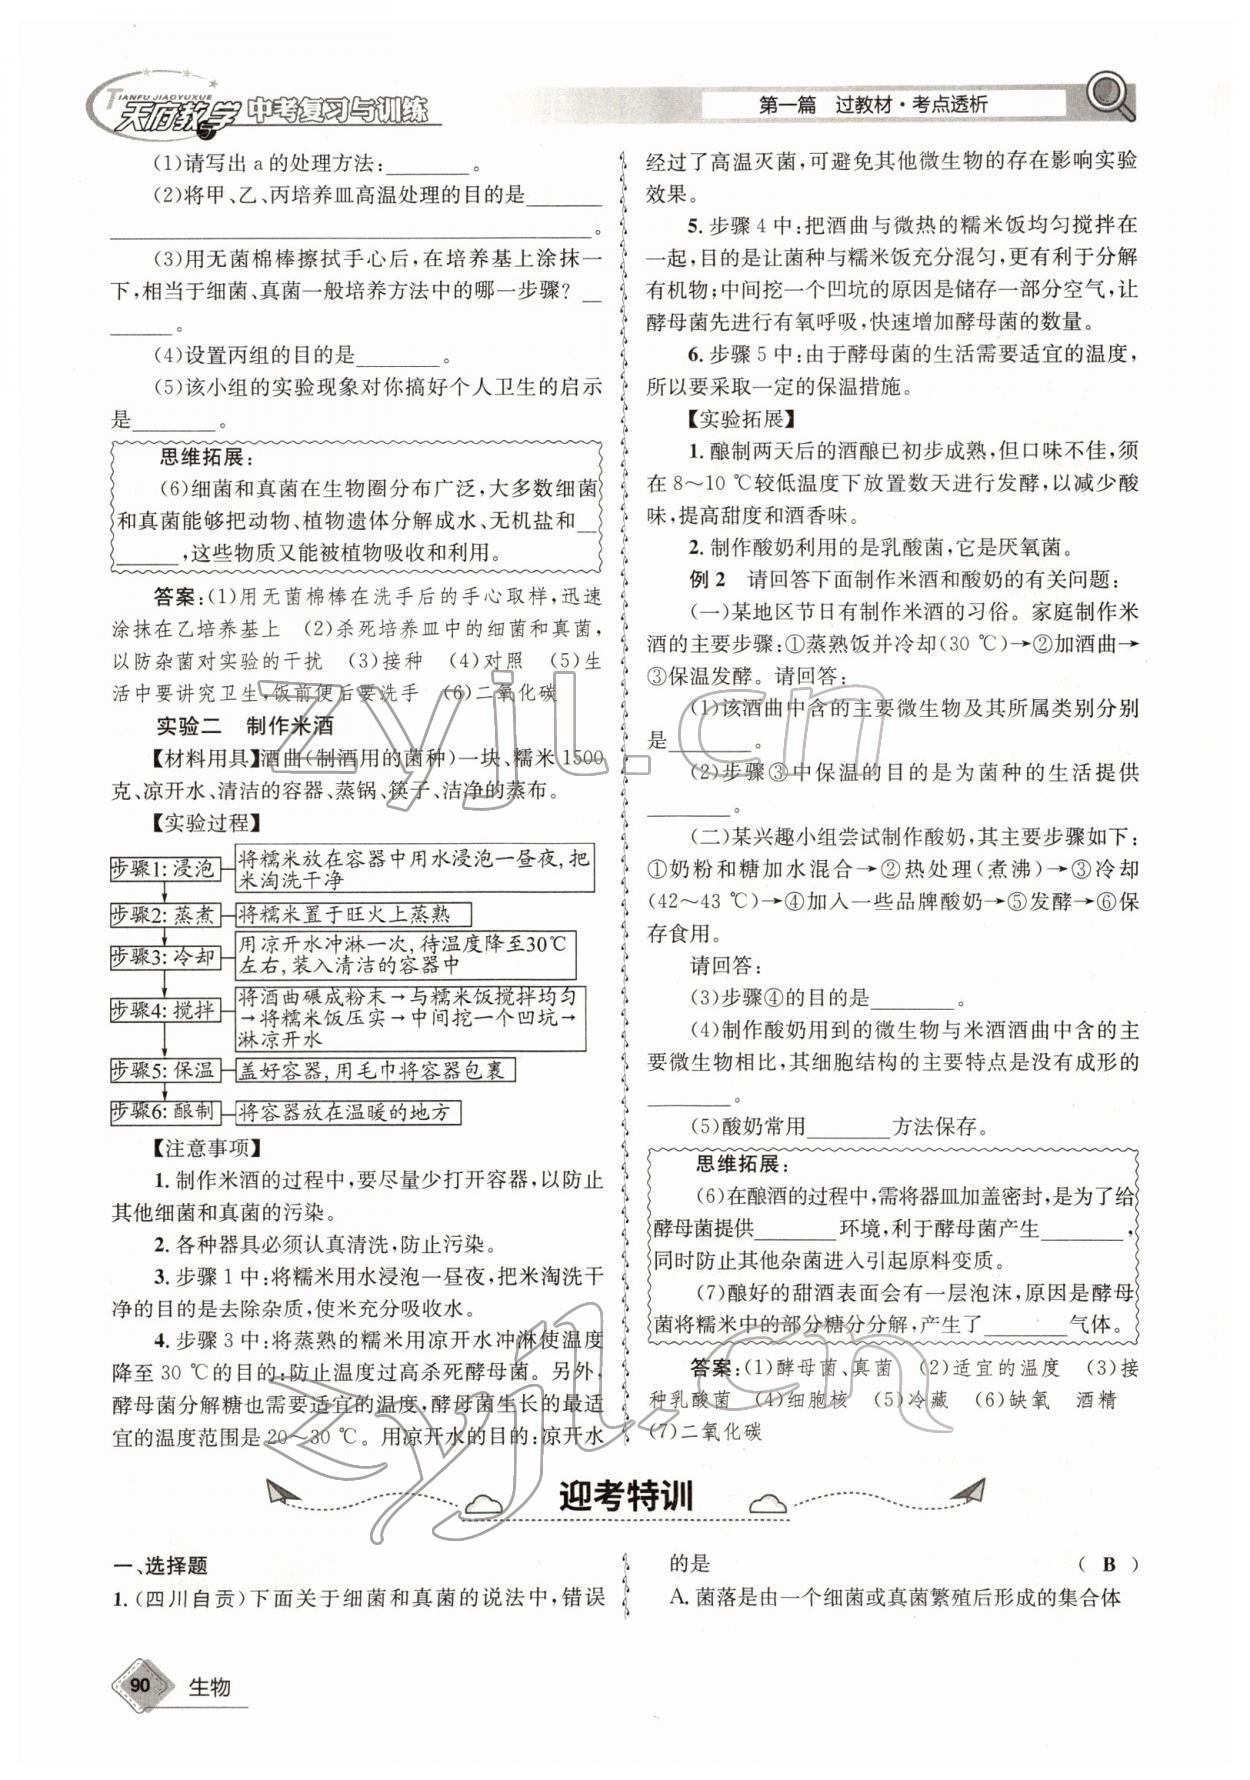 TIANFU JIAOYUXUE
天府教与学 中考复习与训练
第一篇 过教材·考点透析
(1)请写出 a 的处理方法:________。
(2)将甲、乙、丙培养皿高温处理的目的是________
________________________________。
(3)用无菌棉棒擦拭手心后,在培养基上涂抹一
下,相当于细菌、真菌一般培养方法中的哪一步骤? __
______。
(4)设置丙组的目的是________。
(5)该小组的实验现象对你搞好个人卫生的启示
是________。
思维拓展:
(6)细菌和真菌在生物圈分布广泛,大多数细菌
和真菌能够把动物、植物遗体分解成水、无机盐和__
______,这些物质又能被植物吸收和利用。
答案:(1)用无菌棉棒在洗手后的手心取样,迅速
涂抹在乙培养基上 (2)杀死培养皿中的细菌和真菌,
以防杂菌对实验的干扰 (3)接种 (4)对照 (5)生
活中要讲究卫生,饭前便后要洗手 (6)二氧化碳
实验二 制作米酒
【材料用具】酒曲(制酒用的菌种)一块、糯米 1500
克、凉开水、清洁的容器、蒸锅、筷子、洁净的蒸布。
【实验过程】
步骤1:浸泡 将糯米放在容器中用水浸泡一昼夜,把
米淘洗干净
步骤2:蒸煮 将糯米置于旺火上蒸熟
步骤3:冷却 用凉开水冲淋一次,待温度降至30℃
左右,装入清洁的容器中
步骤4:搅拌 将酒曲碾成粉末→与糯米饭搅拌均匀
→将糯米饭压实→中间挖一个凹坑→
淋凉开水
步骤5:保温 盖好容器,用毛巾将容器包裹
步骤6:酿制 将容器放在温暖的地方
【注意事项】
1. 制作米酒的过程中,要尽量少打开容器,以防止
其他细菌和真菌的污染。
2. 各种器具必须认真清洗,防止污染。
3. 步骤 1 中:将糯米用水浸泡一昼夜,把米淘洗干
净的目的是去除杂质,使米充分吸收水。
4. 步骤 3 中:将蒸熟的糯米用凉开水冲淋使温度
降至 30 ℃的目的:防止温度过高杀死酵母菌。另外,
酵母菌分解糖也需要适宜的温度,酵母菌生长的最适
宜的温度范围是 20～30 ℃。用凉开水的目的:凉开水
经过了高温灭菌,可避免其他微生物的存在影响实验
效果。
5. 步骤 4 中:把酒曲与微热的糯米饭均匀搅拌在
一起,目的是让菌种与糯米饭充分混匀,更有利于分解
有机物;中间挖一个凹坑的原因是储存一部分空气,让
酵母菌先进行有氧呼吸,快速增加酵母菌的数量。
6. 步骤 5 中:由于酵母菌的生活需要适宜的温度,
所以要采取一定的保温措施。
【实验拓展】
1. 酿制两天后的酒酿已初步成熟,但口味不佳,须
在 8～10 ℃较低温度下放置数天进行发酵,以减少酸
味,提高甜度和酒香味。
2. 制作酸奶利用的是乳酸菌,它是厌氧菌。
例 2 请回答下面制作米酒和酸奶的有关问题:
(一)某地区节日有制作米酒的习俗。家庭制作米
酒的主要步骤:①蒸熟饭并冷却(30 ℃)→②加酒曲→
③保温发酵。请回答:
(1)该酒曲中含的主要微生物及其所属类别分别
是________。
(2)步骤③中保温的目的是为菌种的生活提供
________。
(二)某兴趣小组尝试制作酸奶,其主要步骤如下:
①奶粉和糖加水混合→②热处理(煮沸)→③冷却
(42～43 ℃)→④加入一些品牌酸奶→⑤发酵→⑥保
存食用。
请回答:
(3)步骤④的目的是________。
(4)制作酸奶用到的微生物与米酒酒曲中含的主
要微生物相比,其细胞结构的主要特点是没有成形的
________。
(5)酸奶常用________方法保存。
思维拓展:
(6)在酿酒的过程中,需将器皿加盖密封,是为了给
酵母菌提供________环境,利于酵母菌产生________,
同时防止其他杂菌进入引起原料变质。
(7)酿好的甜酒表面会有一层泡沫,原因是酵母
菌将糯米中的部分糖分分解,产生了________气体。
答案:(1)酵母菌、真菌 (2)适宜的温度 (3)接
种乳酸菌 (4)细胞核 (5)冷藏 (6)缺氧 酒精
(7)二氧化碳
迎考特训
一、选择题
1. (四川自贡)下面关于细菌和真菌的说法中,错误
的是 ( B )
A. 菌落是由一个细菌或真菌繁殖后形成的集合体
90 生物
zyjl.cn
zyjl.cn